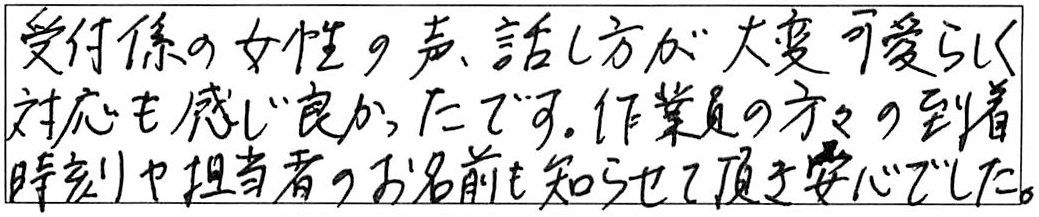 受付係の女性の声、話し方が大変可愛らしく
対応も感じ良かったです。作業員の方々の到着
時刻や担当者のお名前も知らせて頂き安心でした。